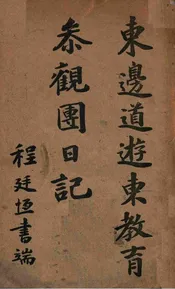 東邊道遊東教育
叅觀團日記
程廷恆書端